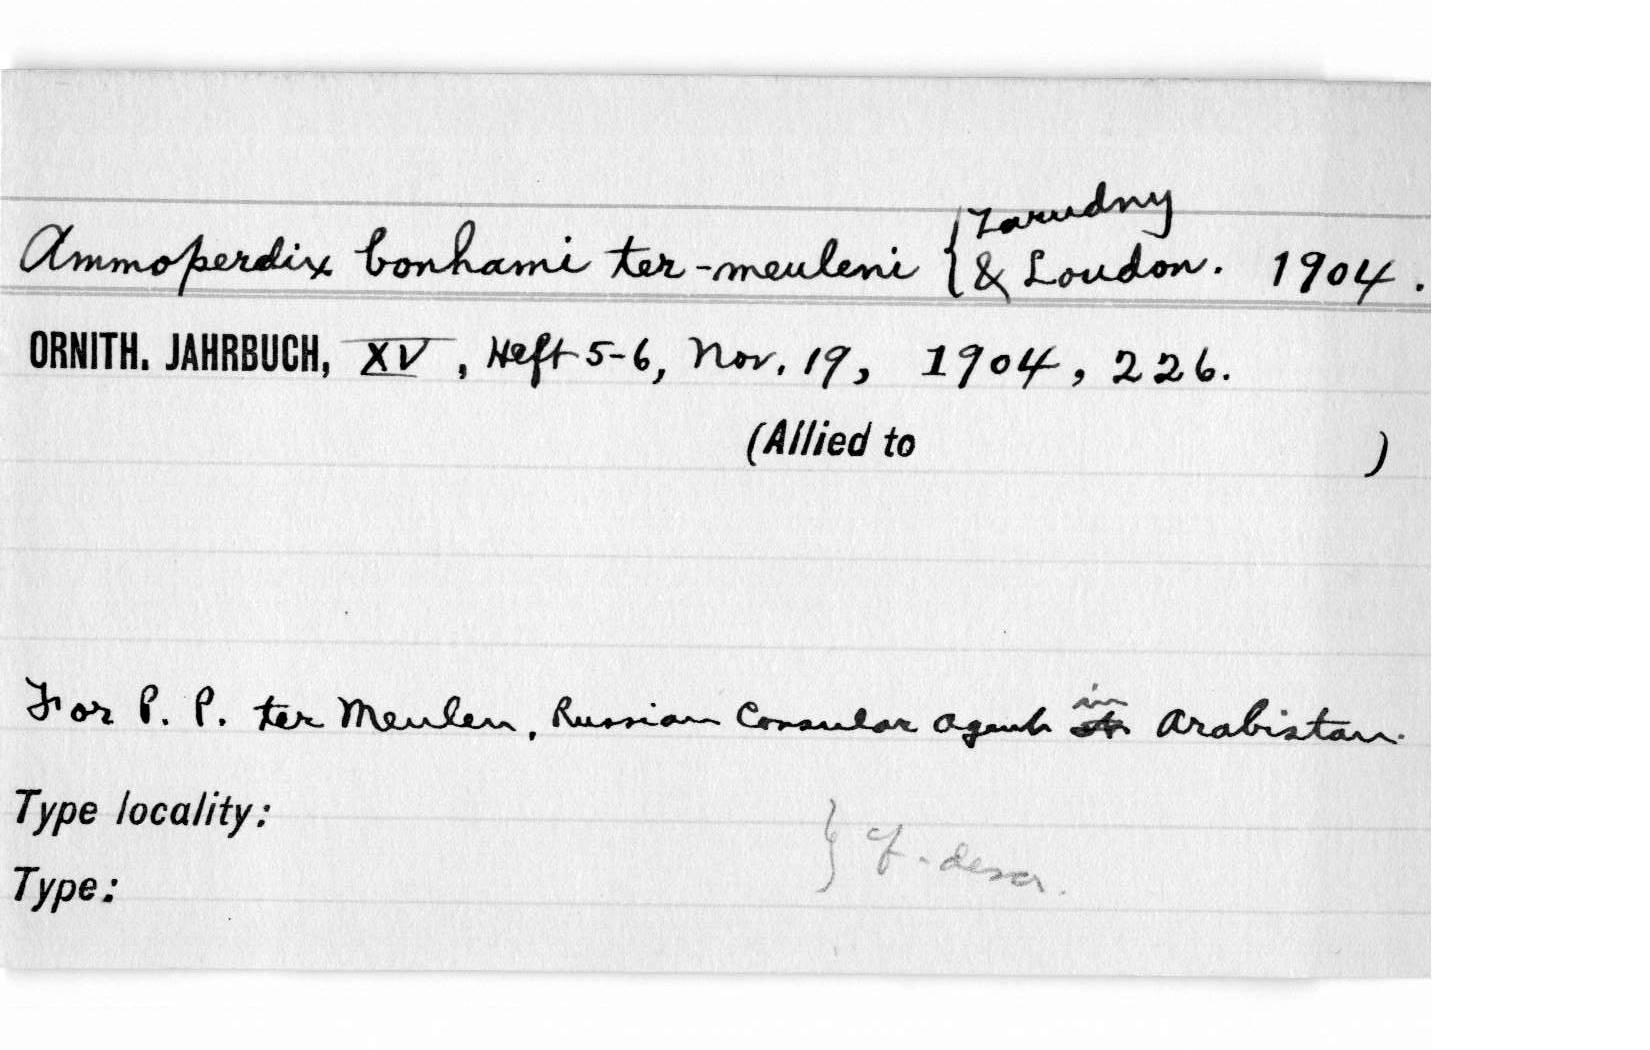 Ammoperdix bonhami ter-meuleni { Zarudny
& Loudon. 1904.
ORNITH. JAHRBUCH, XV, Heft 5-6, Nov. 19, 1904, 226.
(Allied to )
in
For P. P. ter Meulen, Russian Consular agent Arabistan.
Type locality:
} cf. descr.
Type: